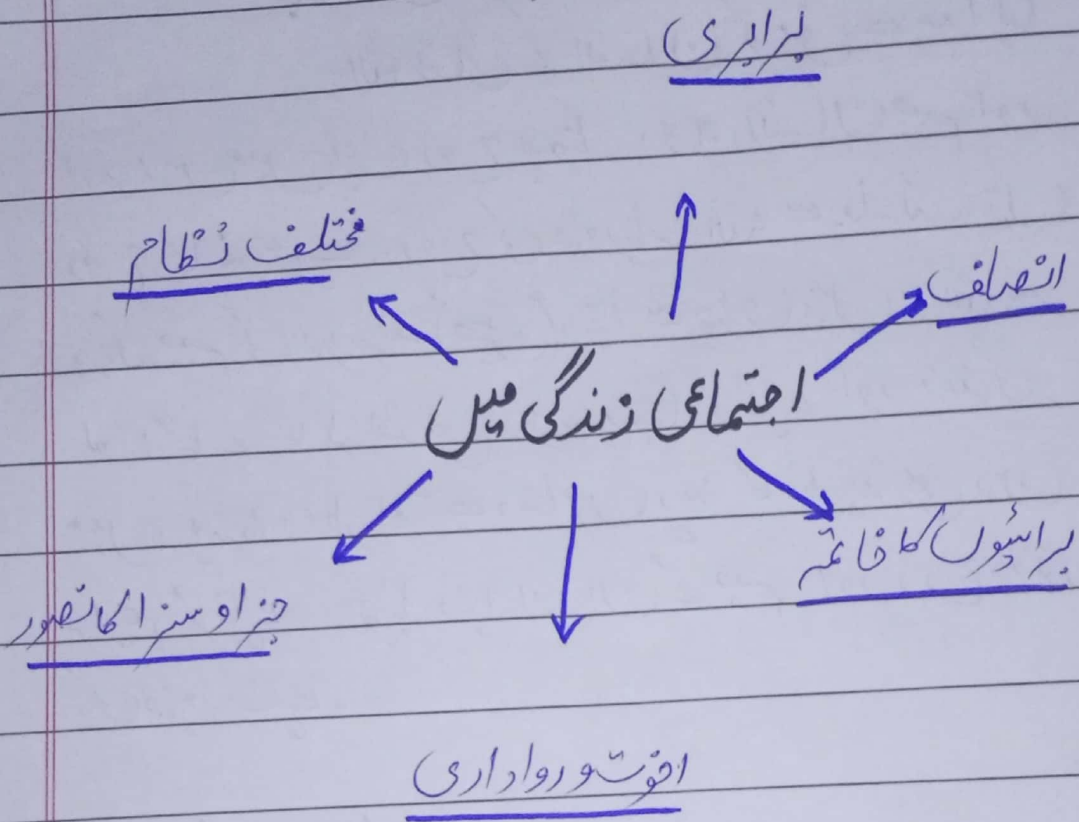 برابری
مختلف نظام
انصاف
اجتماعی زندگی میں
برائیوں کا خاتمہ
جزا و سزا کا تصور
اخوت و رواداری